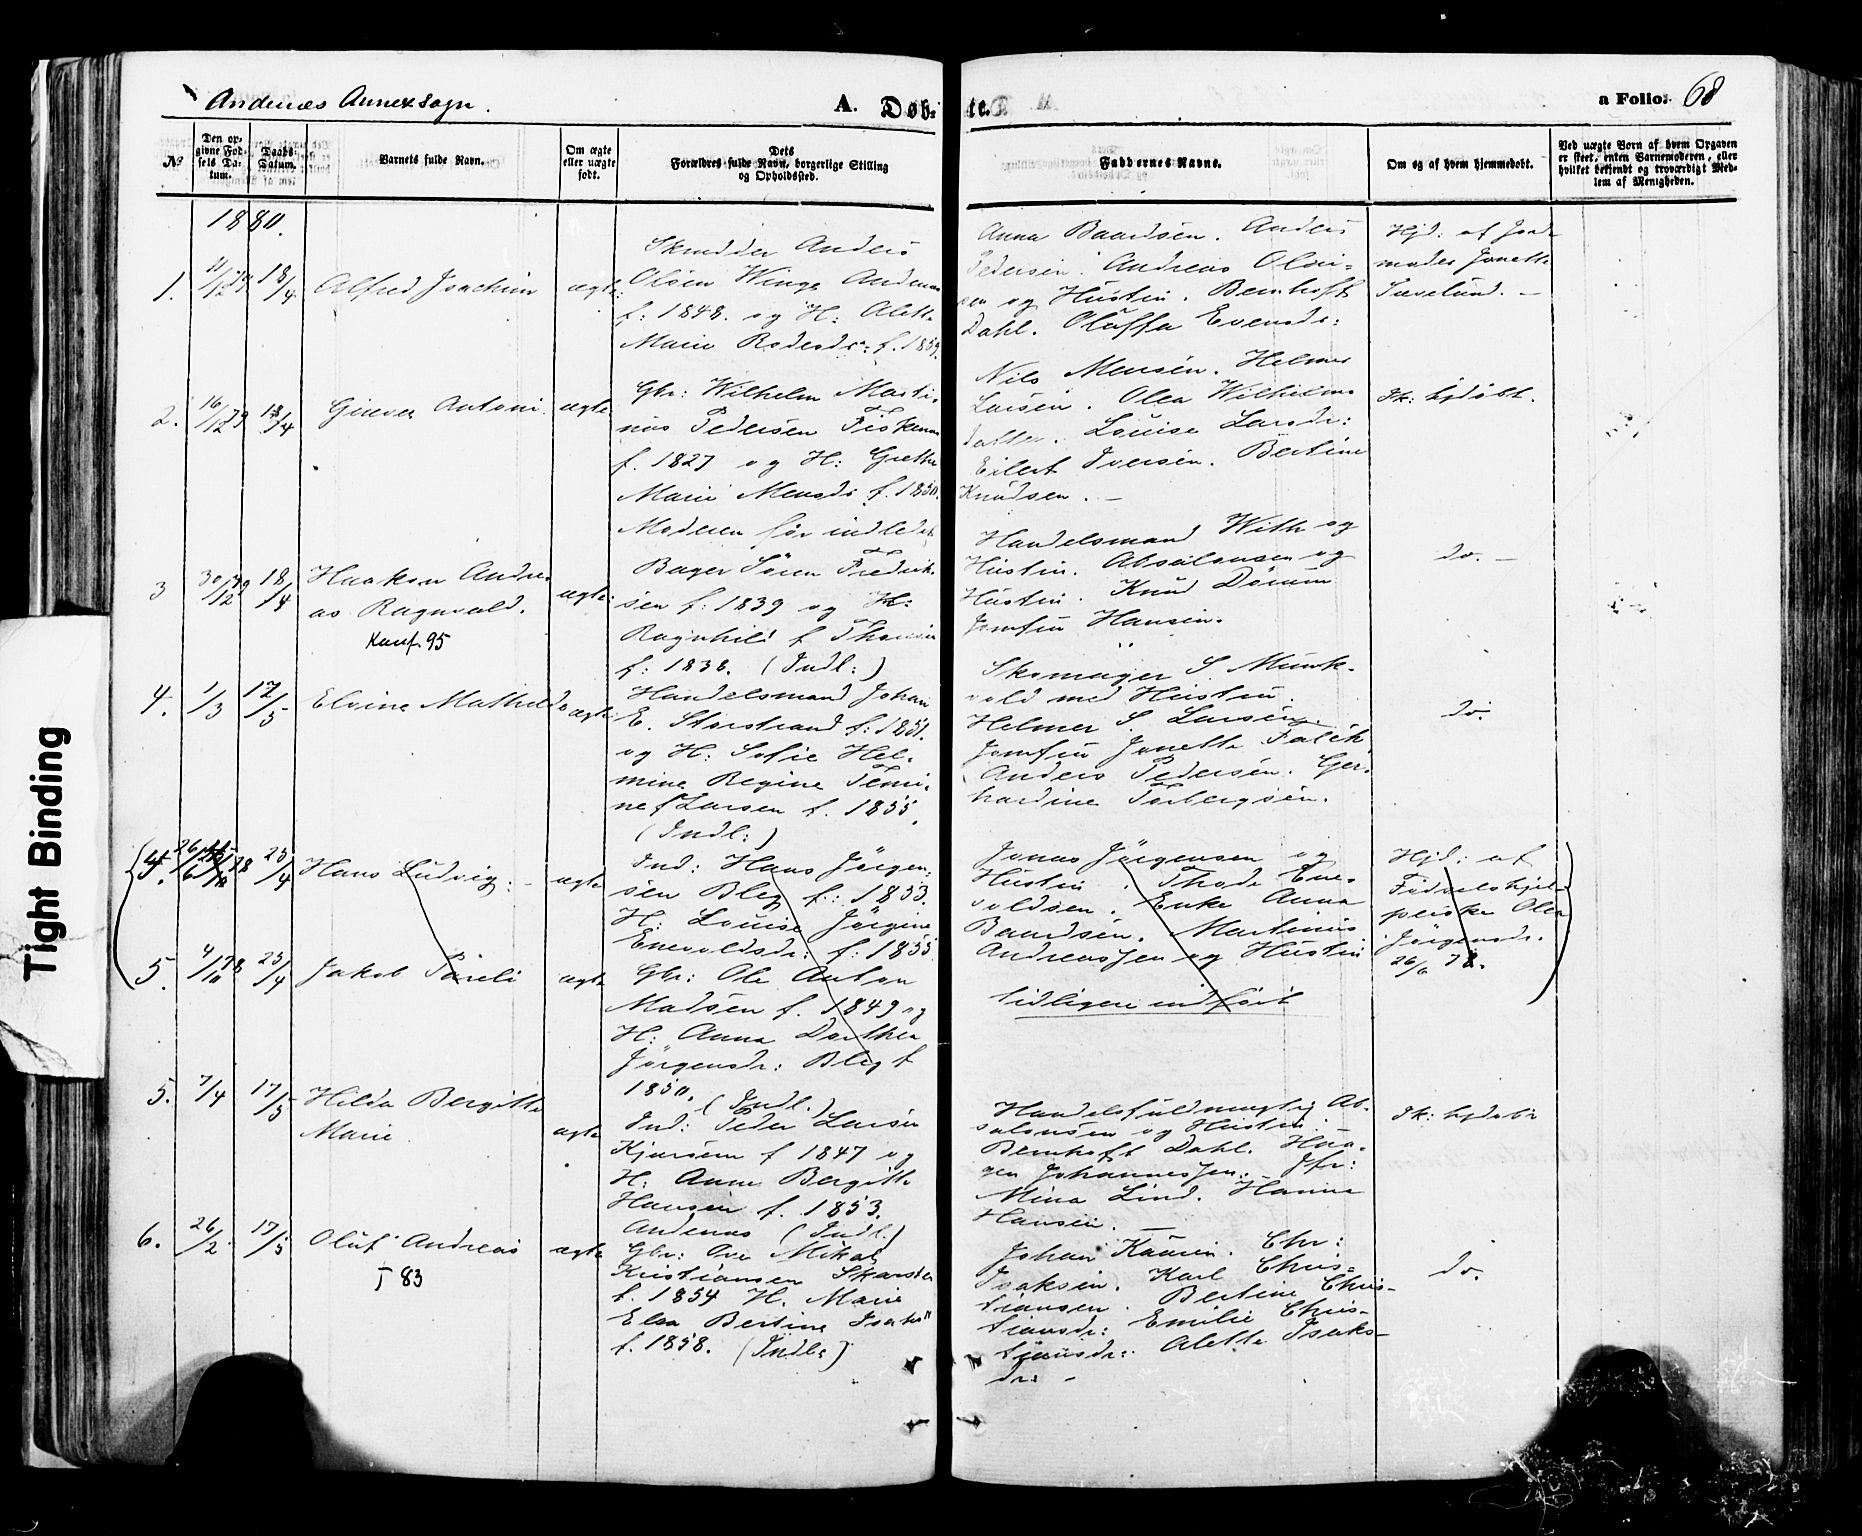 Andenæs Annexsogn.
A. Døb-
te.
a Folio.
68
No
Den op-
givne Fød-
sels Da-
tum.
Daabs-
Datum.
Barnets fulde Navn.
Om ægte
eller uægte
født.
Dets
Forældres fulde Navn, borgerlige Stilling
og Opholdssted.
Faddernes Navne.
Om og af hvem hjemmedøbt.
Ved uægte Børn af hvem Opgaven
er skeet, enten Barnemoderen, eller
hvilket bekjendt og troværdigt Med-
lem af Menigheden.
1880.
1.
11/12 79
18/4
Alfred Joachim
ægte
Skrædder Anders
Olsen Winge Andenæs
f. 1848. og H: Alette
Marie f. 1859.
Anna Baardsen. Anders
Pedersen. Andreas
sen og Hustru. Bernhoft
Dahl. Oluffa Evensdr:
Hjd: af Jord-
moder Jonette
2.
16/12 79
18/4
Antoni
ægte
Gbr: Wilhelm Marti-
nus Pedersen Fiskenes
f. 1827 og H: Grethe
Marie Monsdr f. 1850.
Moderen før indledet
Nils Monsen. Helmer
Larsen. Olea Wilhelms
datter. Louise Larsdr:
Eilert Iversen. Bertine
Knudsen. -
Ik: hjdøbt.
3
30/12 79
18/4
Haakon Andre
as Ragnvald.
Konf. 95
ægte
Bager Sören Fredrik-
sen f: 1839 og H:
Ragnhild f
f: 1838. (Indl:)
Handelsmand With og
Hustru. Absalonsen og
Hustru. Knud
Jomfru Hansen.
do. -
4.
1/3
17/5
Elvine Mathilde
ægte
Handelsmand Johan
E. Storstrand f: 1851.
og H: Sofie Hel-
mine Regine
ne f Larsen f. 1855.
(Indl:)
Skomager S. Munk-
vold med Hustru.
Helmer S. Larsen.
Jomfru Jonette Falch
Anders Pedersen. Ger-
hardine Torbergsen.
do.
4.
26/6 78
25/4
Hans Ludvig. -
ægte
Ind: Hans Jörgen-
sen Bleg f.: 1853.
H: Louise Jörgine
Enevoldsdr: f: 1855
Jonas Jörgensen og
Hustru. Thode Ene-
voldsen. Enke Anna
Baardsen. Martinus
Andreassen og Hustru
Hjd: af
Födselshjel-
perske Olea
Jörgensdr.
26/6 78.
5.
4/10 78
25/4
Jakob Pareli
ægte
Gbr: Ole Anton
Madsen f. 1849 og
H: Anna Dorthea
Jörgensdr: Bleg f
1850. (Indl.)
tidligere indført
5.
7/4
17/5
Hilda Bergitte
Marie
ægte
Ind: Peder Larsen
f 1847 og
H: Anna Bergitte
Hansen f. 1853.
Andenæs (Indl.)
Handelsfuldmægtig Ab-
salonsen og Hustru.
Bernhoft Dahl. Haa-
gen Johannessen. Jfr:
Mina Lind. Hanna
Hansen.
Ik: hjdøbt
6.
26/2
17/5
Oluf Andreas
† 83
ægte
Gbr: Ove Mikal
Kristiansen Skarstein
f. 1854 H. Marie
Elea Bertine Isaksdr
f. 1858. (Indl:)
Johan Kaaren. Chr:
Isaksen. Karl Chris-
tiansen. Bertine Chris-
tiansdr: Emilie Chris-
tiansdr: Alette Isaks-
dr: -
do.
Tight Binding